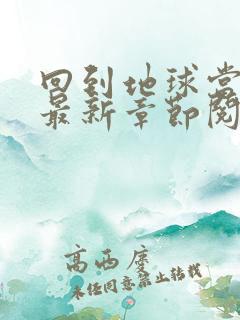 回到地球当
最新章节阅
高西度
未经同意禁止转载